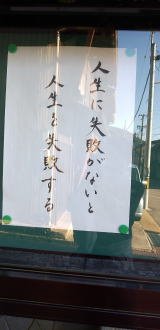 人生に失敗がないと
人生を失敗する